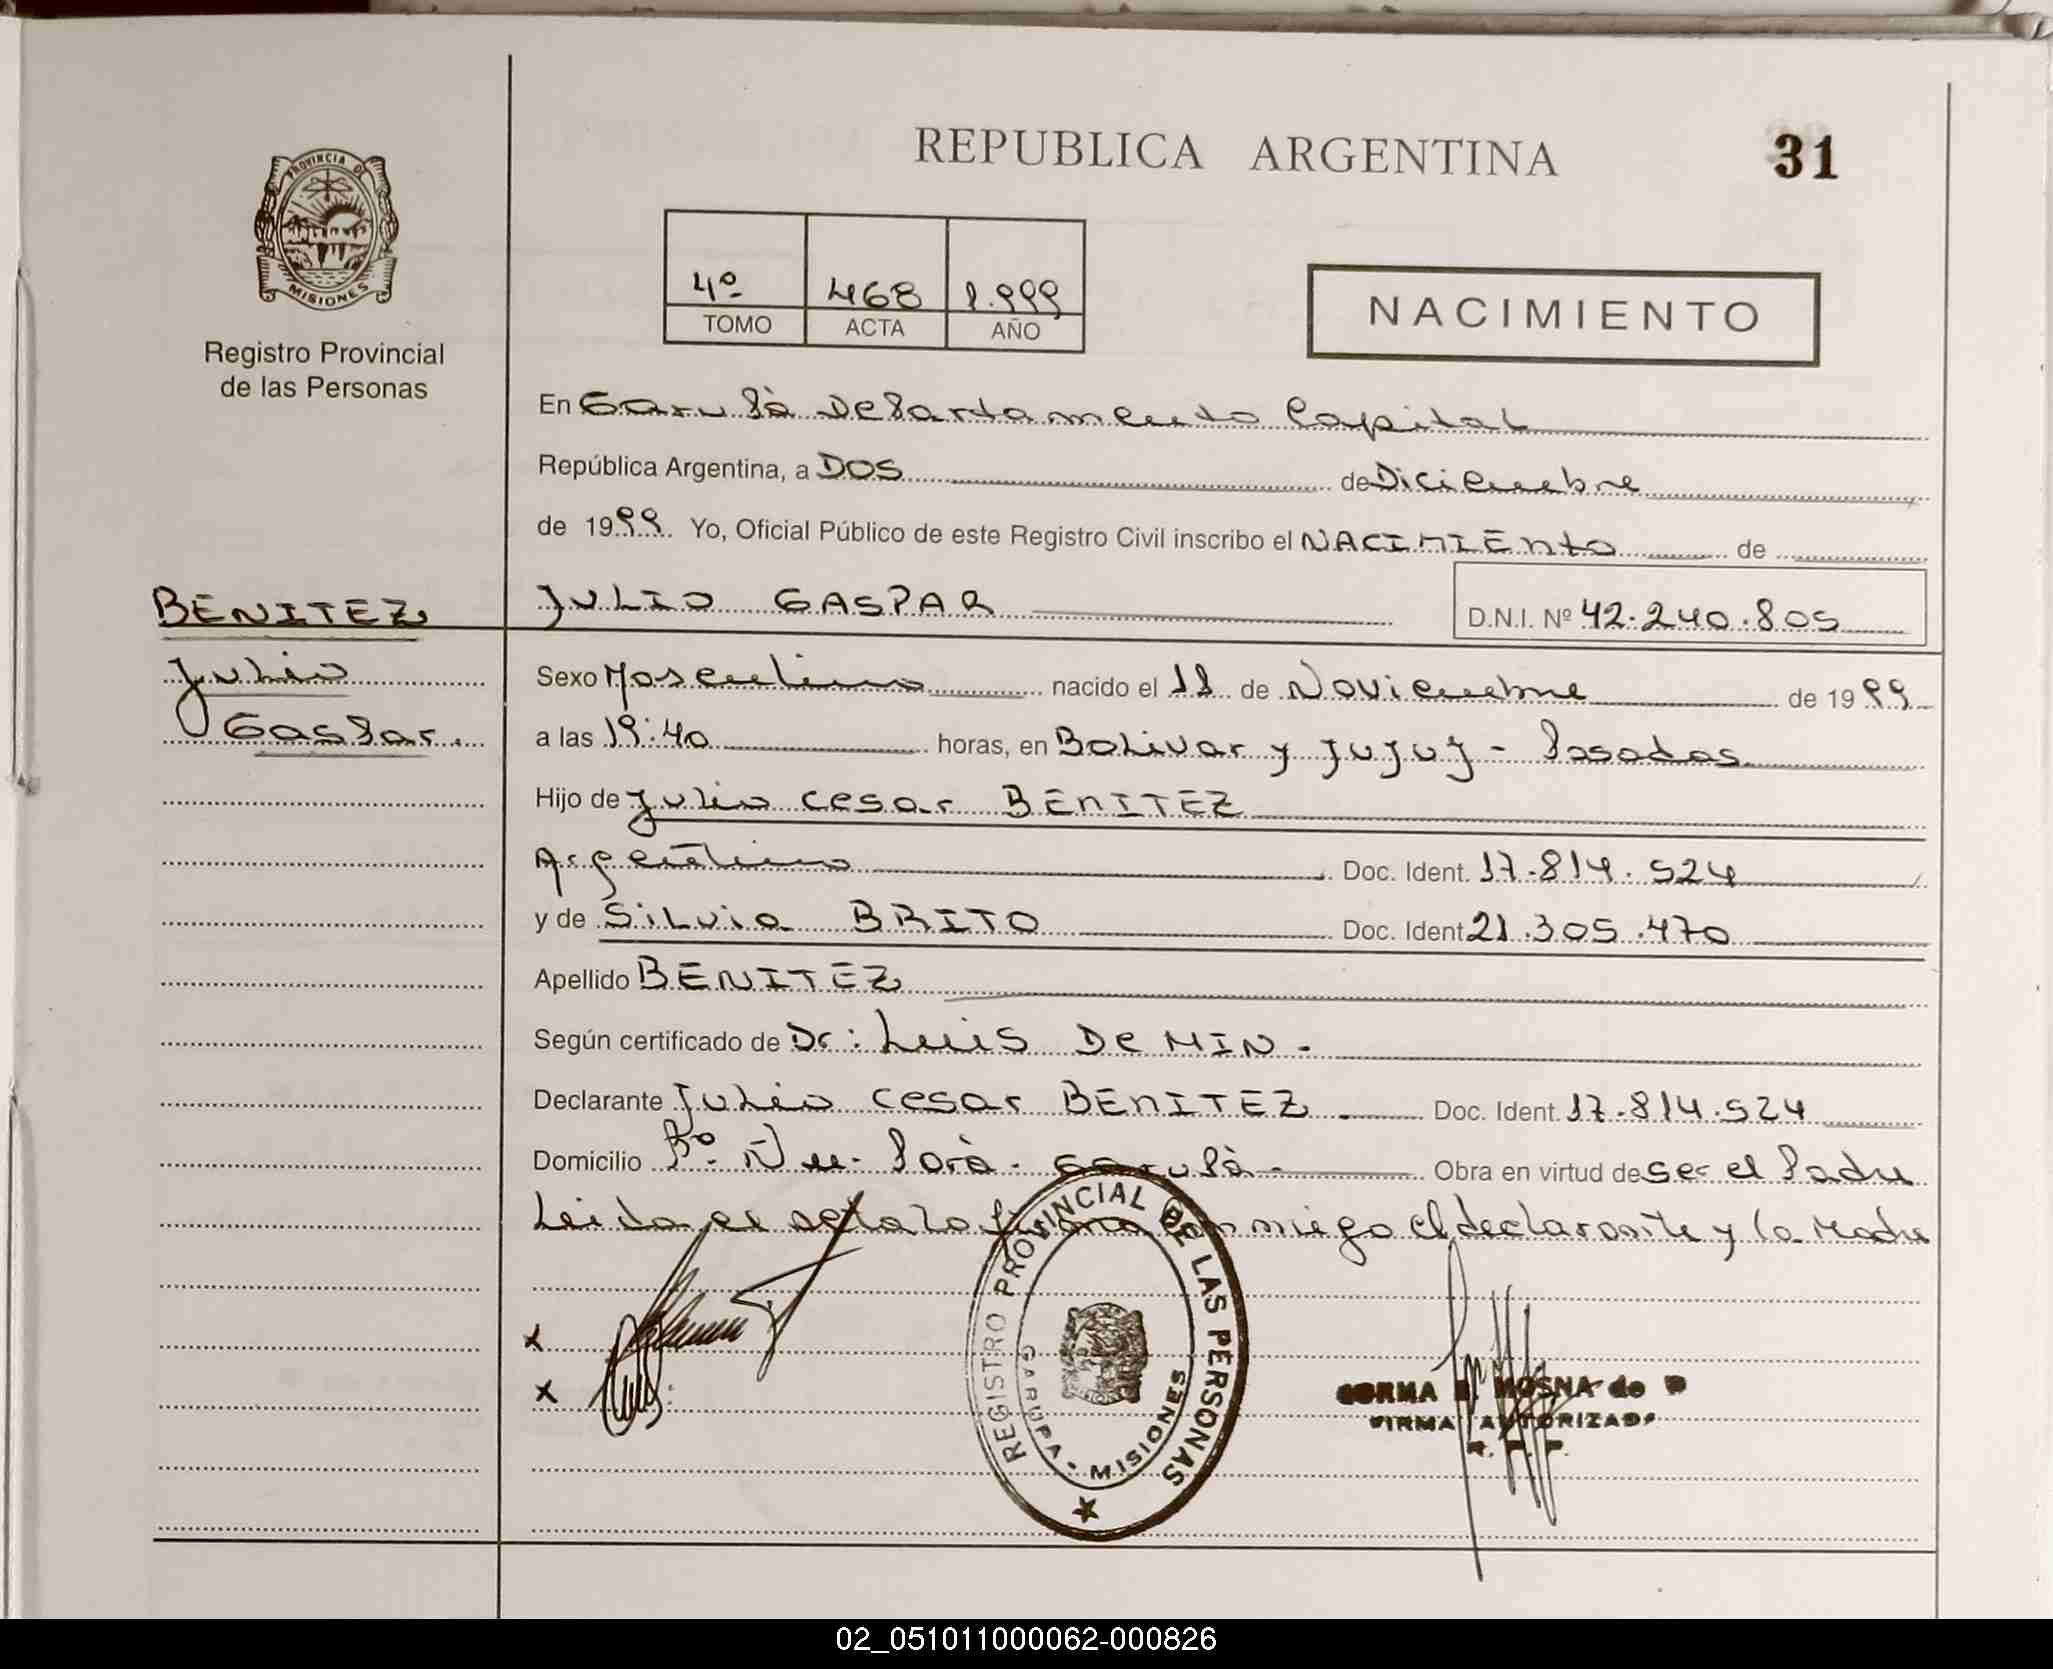 REPUBLICA ARGENTINA
31
PROVINCIA DE
MISIONES
Registro Provincial
de las Personas
4º 468 1.999
TOMO ACTA AÑO
NACIMIENTO
En Garupà Departamento Capital
República Argentina, a DOS de Diciembre
de 1999 Yo, Oficial Público de este Registro Civil inscribo el NACIMIENTO de
BENITEZ JULIO GASPAR D.N.I. Nº 42.240.805
Julio
Gaspar.
Sexo Masculino nacido el 11 de Noviembre de 1999
a las 19:40 horas, en Bolivar y Jujuy - Posadas
Hijo de Julio Cesar BENITEZ
Argentino Doc. Ident. 17.814.524
y de Silvia BRITO Doc. Ident 21.305.470
Apellido BENITEZ
Según certificado de Dr: Luis De MIN.
Declarante Julio Cesar BENITEZ Doc. Ident. 17.814.524
Domicilio Bº Ñu- Porà - Garupà - Obra en virtud de ser el Padre
Leida el acta la firma conmigo el declarante y la Madre
REGISTRO PROVINCIAL DE LAS PERSONAS
GARUPA - MISIONES
X
X
MOSNA de
FIRMA AUTORIZADA
02_051011000062-000826